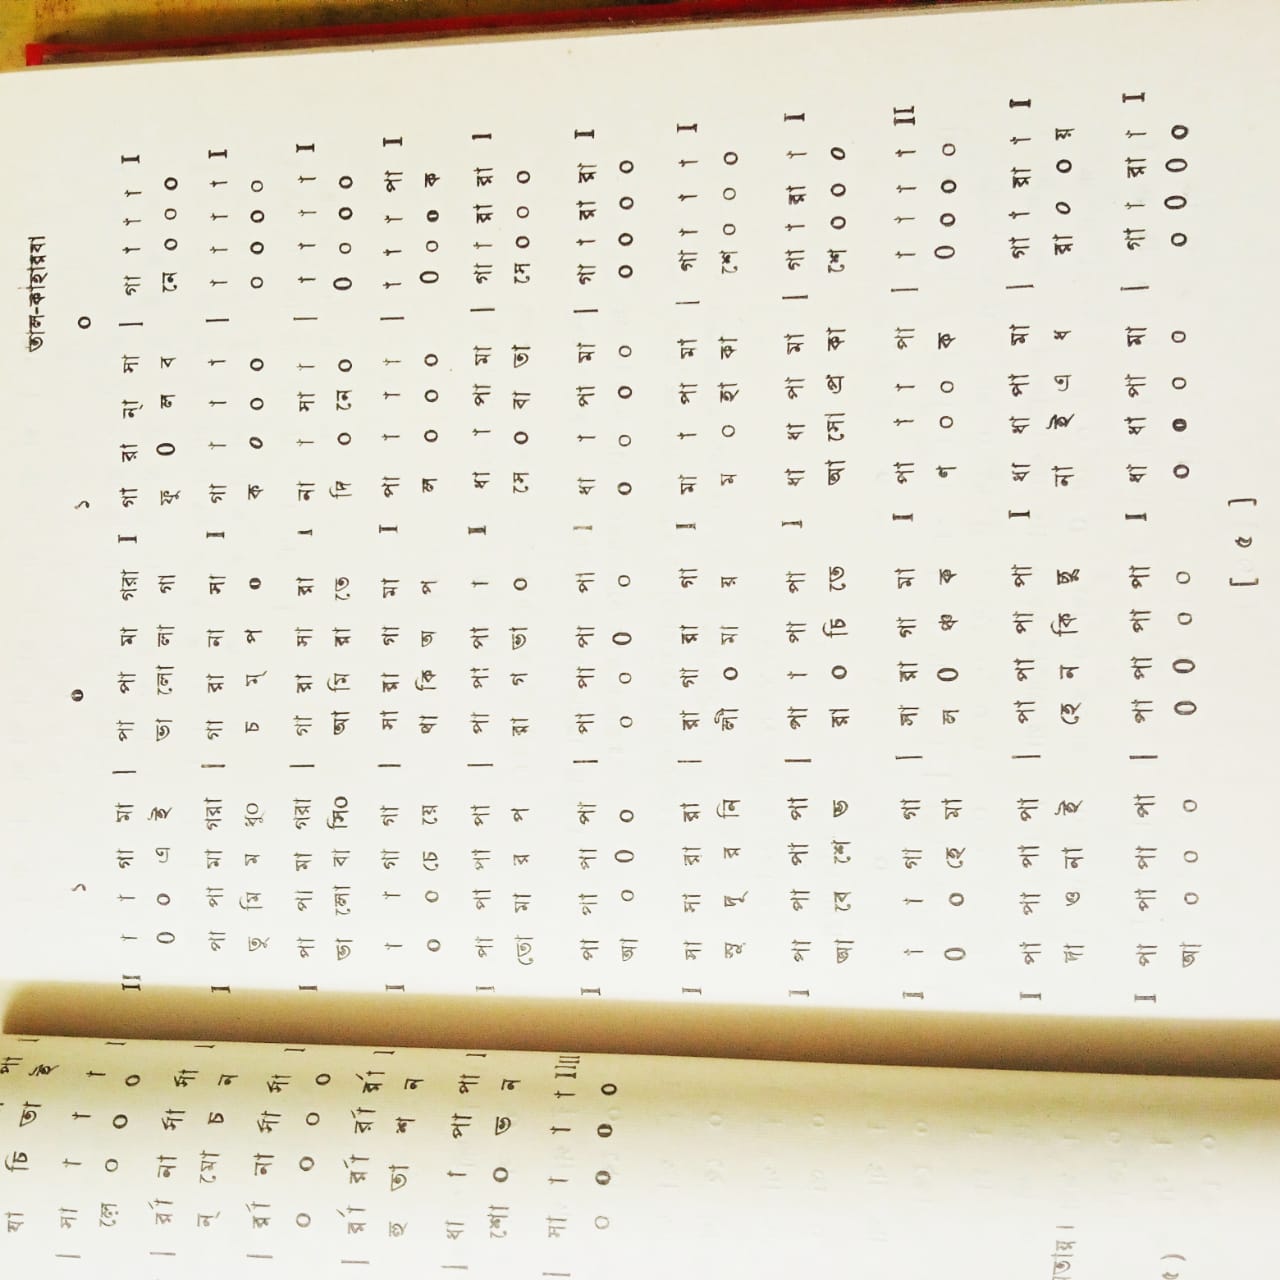 তাল-কাহারবা
১ ০ ১ ০
II া া গা মা | পা পা মা গরা I গা রা ন্‌ সা | গা া া া I
০ ০ এ ই ভা লো লা গা ফু ০ ল ব নে ০ ০ ০
I পা পা মা গরা | গা রা না সা I গা া া া | া া া া I
তু মি ম ধু০ চ ম্ প ০ ক ০ ০ ০ ০ ০ ০ ০
I পা পা মা গরা | গা রা সা রা I না া সা া | া া া া I
ভা লো বা সি০ আ মি রা তে দি ০ নে ০ ০ ০ ০ ০
I া া গা গা | মা রা গা মা I পা া া া | া া া পা I
০ ০ চে য়ে থা কি অ প ল ০ ০ ০ ০ ০ ০ ক
I পা পা পা পা | পা পা পা া I ধা া পা মা | গা া রা রা I
তো মা র প রা গ তা ০ সে ০ বা তা সে ০ ০ ০
I পা পা পা পা | পা পা পা পা I ধা া পা মা | গা া রা রা I
আ ০ ০ ০ ০ ০ ০ ০ ০ ০ ০ ০ ০ ০ ০ ০
I সা সা রা রা | রা গা রা গা I মা া পা মা | গা া া া I
সু দূ র নি লী ০ মা য় ম ০ হা কা শে ০ ০ ০
I পা পা পা পা | পা া পা পা I ধা ধা পা মা | গা া রা া I
আ বে শে ভ রা ০ চি তে আ সো প্র কা শে ০ ০ ০
I া া গা গা | সা রা গা মা I পা া া পা | া া া া II
০ ০ হে মা ল ০ ঞ্চ ক ণ ০ ০ ক ০ ০ ০ ০
I পা পা পা পা | পা পা পা পা I ধা ধা পা মা | গা া রা া I
দা ও না ই হে ন কি ছু না ই এ ধ রা ০ ০ য়
I পা পা পা পা | পা পা পা পা I ধা ধা পা মা | গা া রা া I
আ ০ ০ ০ ০ ০ ০ ০ ০ ০ ০ ০ ০ ০ ০ ০
[ ৫ ]
যা চি তা ই
| সা া া া |
লে ০ ০ ০
| র্রা না র্সা র্সা |
ন্ মো চ ন
| র্রা না র্সা র্সা |
০ ০ ০ ০
| র্রা র্রা র্রা র্রা |
হু তা শ ন
| ধা া পা পা |
শো ০ ভ ন
| সা া া া IIII
০ ০ ০ ০